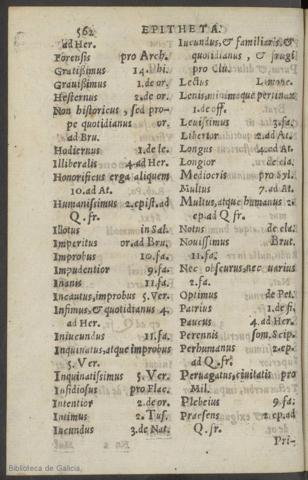 562 EPITHETA.
ad Her.
Forensis pro Arch.
Gratissimus 14. bi.
Gratissimus 1. de or.
Hesternus 2. de or.
Non historicus, sed pro-
pe quotidianus or.
ad Bru.
Hodiernus 1. de le.
Illiberalis 4. ad Her.
Honorificus erga aliquem
10. ad At.
Humanissimus 2. epist. ad
Q. fr.
Illotus in Sal.
Imperitus or. ad Bru.
Improbus 10. fa.
Impudentior 9. fa.
Inanis 11. fa.
Incautus, improbus 5. Ver.
Infimus, & quotidianus 4.
ad Her.
Iniucundus 11. fa.
Inquinatus, atque improbus
5. Ver.
Inquinatissimus 5. Ver.
Insidiosus pro Flac.
Intentior 2. de or.
Intimus 2. Tus.
Iucundus 3. de Nat.
Iucundus, & familiaris, &
quotidianus, & frugi
pro Clu.
Lectus
Lenis, minimeque pertinax
1. de off.
Leuissimus 3. fa.
Libertor 2. ad At.
Longus 4. ad At.
Longior de cla.
Mediocris pro Syl.
Multus 7. ad At.
Multus, atque humanus 2.
ep. ad Q. fr.
Notus de cla.
Nouissimus Brut.
11. fa.
Nec obscurus, nec uarius
2. fa.
Optimus de Pet.
Patrius 1. de fi.
Paucus 4. ad Her.
Perennis som. Scip.
Perhumanus 2. ep.
ad Q. fr.
Peruagatus, ciuitatis pro
Mil.
Plebeius 9. fa.
Praesens 2. ep. ad
Q. fr.
Pri-
Biblioteca de Galicia